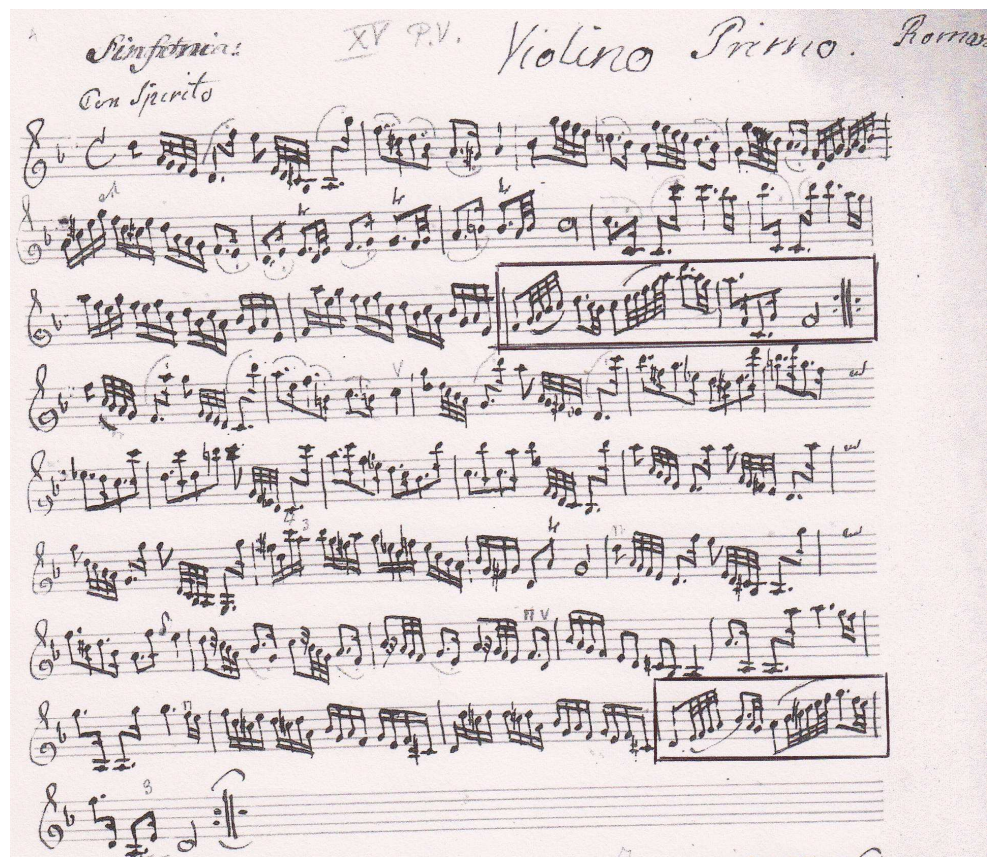 Sinfonia: XV P.V. Violino Primo. Roman
Con Spirito